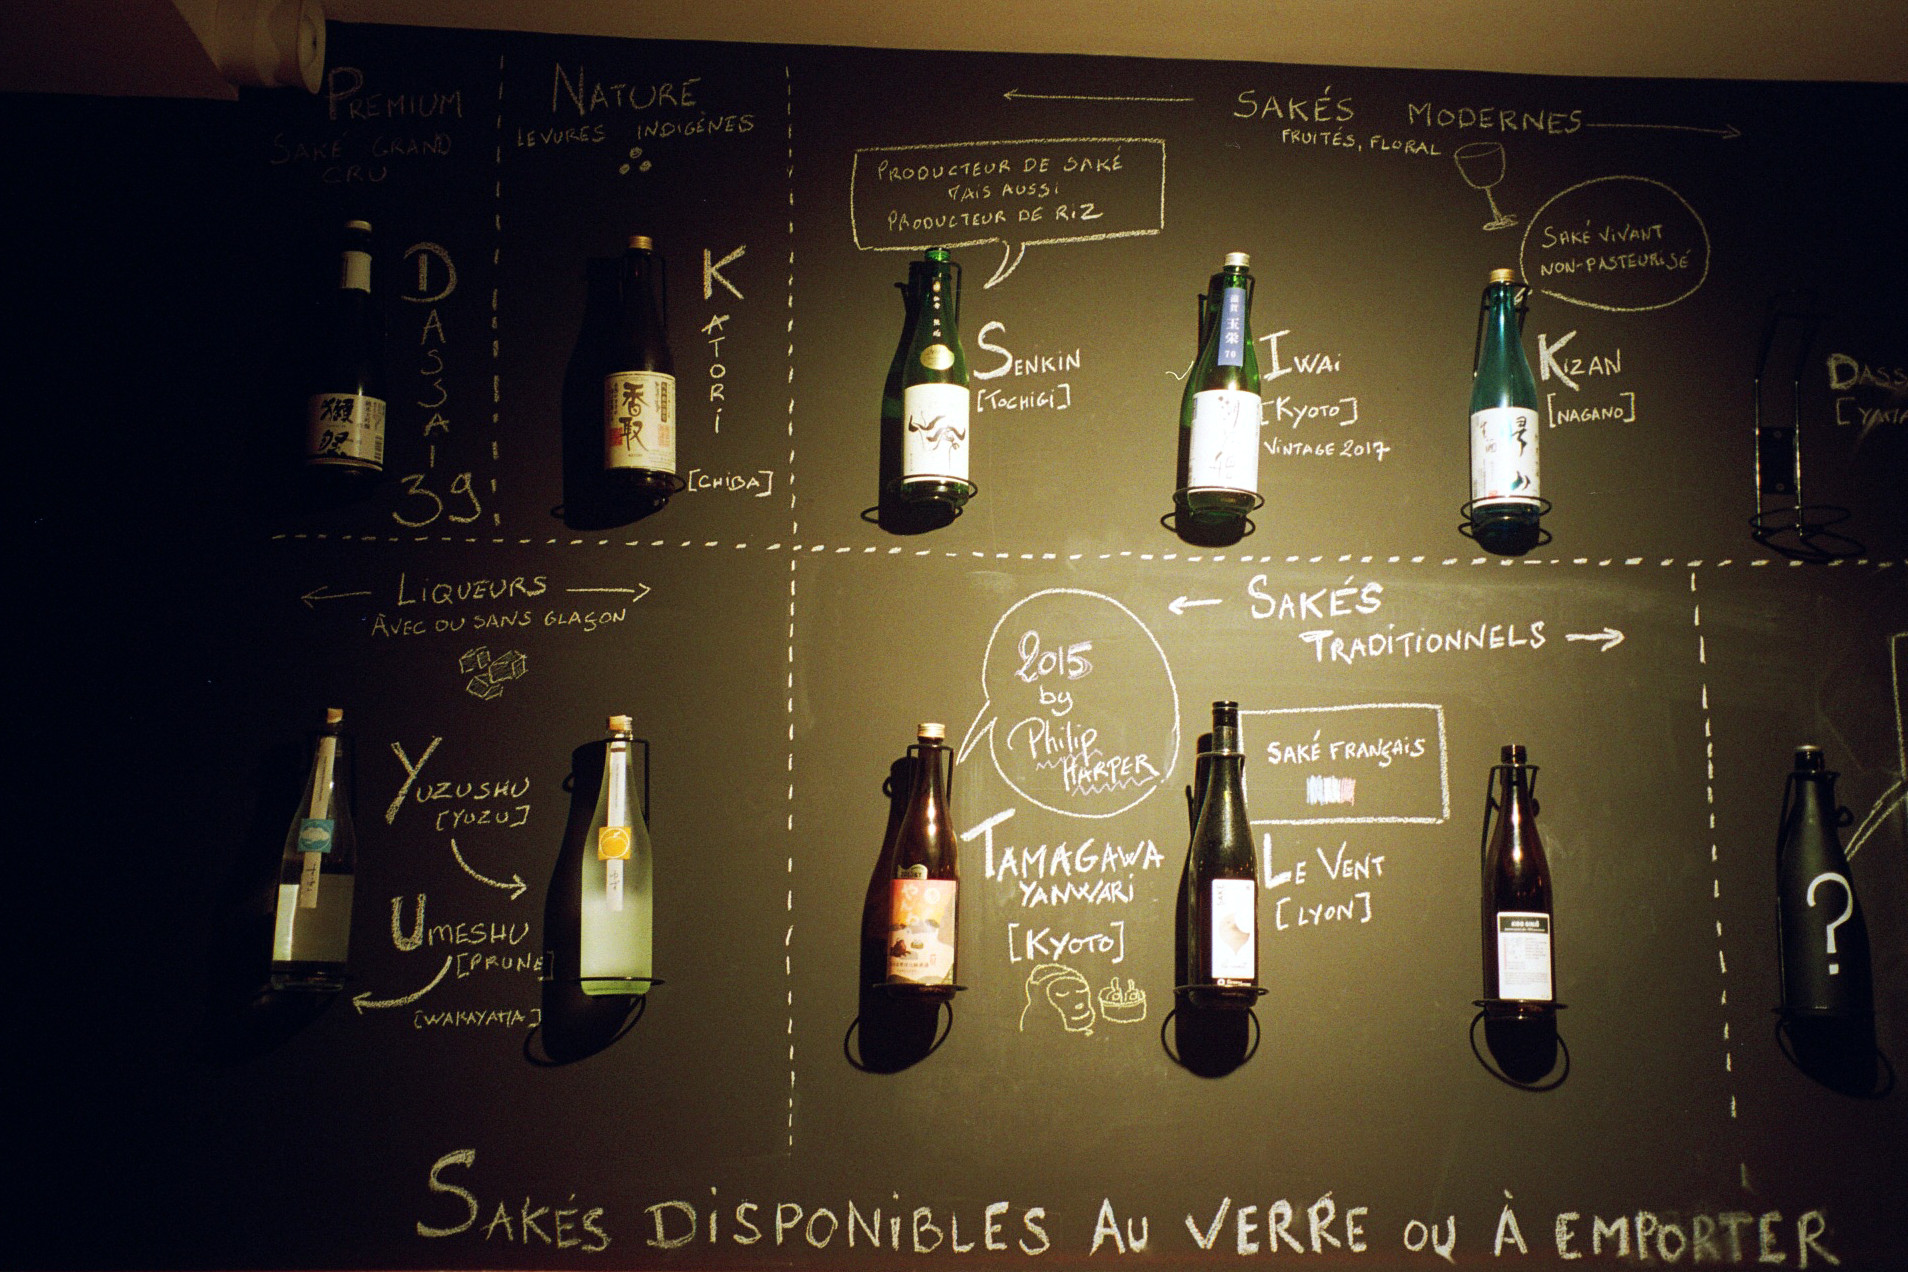 PREMIUM
SAKÉ GRAND
CRU
DASSAI
39
獺祭
NATURE
LEVURES INDIGÈNES
KATORI
[CHIBA]
香取
← SAKÉS MODERNES →
FRUITÉS, FLORAL
PRODUCTEUR DE SAKÉ
MAIS AUSSI
PRODUCTEUR DE RIZ
SENKIN
[TOCHIGI]
玉栄
70
IWAI
[KYOTO]
VINTAGE 2017
SAKÉ VIVANT
NON-PASTEURISÉ
KIZAN
[NAGANO]
帰山
← LIQUEURS →
AVEC OU SANS GLAÇON
YUZUSHU
[YUZU]
UMESHU
[PRUNE]
[WAKAYAMA]
← SAKÉS
TRADITIONNELS →
2015
by
Philip
HARPER
TAMAGAWA
YANWARI
[KYOTO]
SAKÉ FRANÇAIS
LE VENT
[LYON]
?
SAKÉS DISPONIBLES AU VERRE OU À EMPORTER